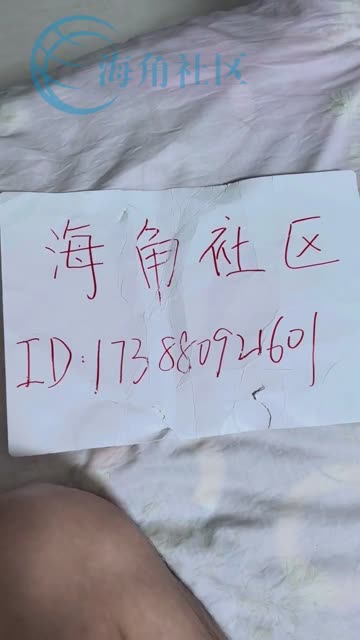 海角社区
海角社区
ID:173880921601